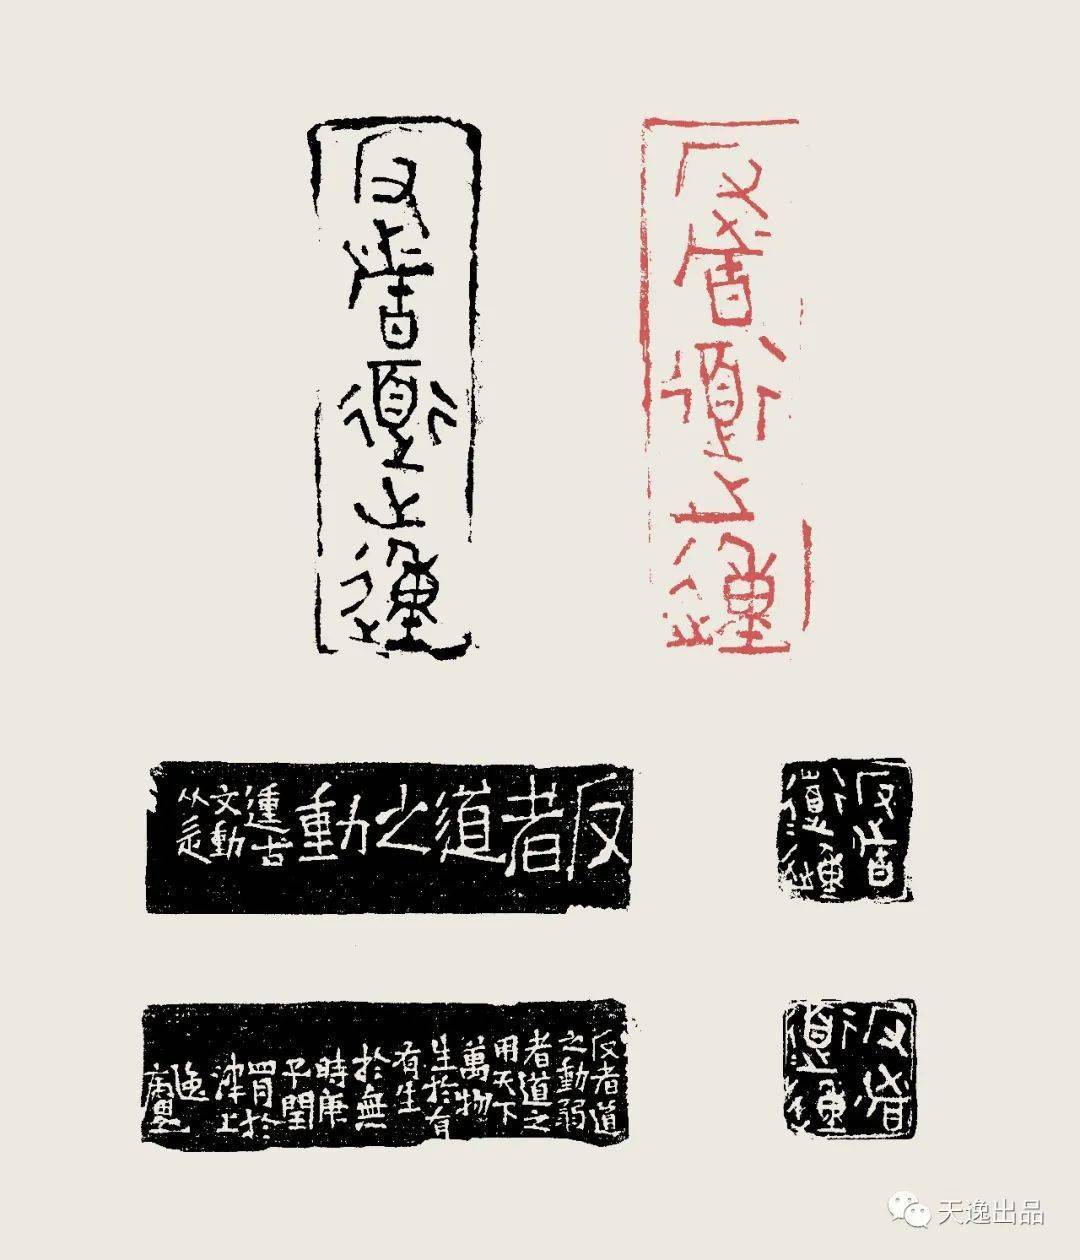 反者道之動
反者道之動
反者道之動
𨔝古
文動
从辵
反者
道動
反者道
之動弱
者道之
用天下
萬物
生於有
有生
於無
時庚
子閏
四月於
津上
逸
反者
道動
天逸出品